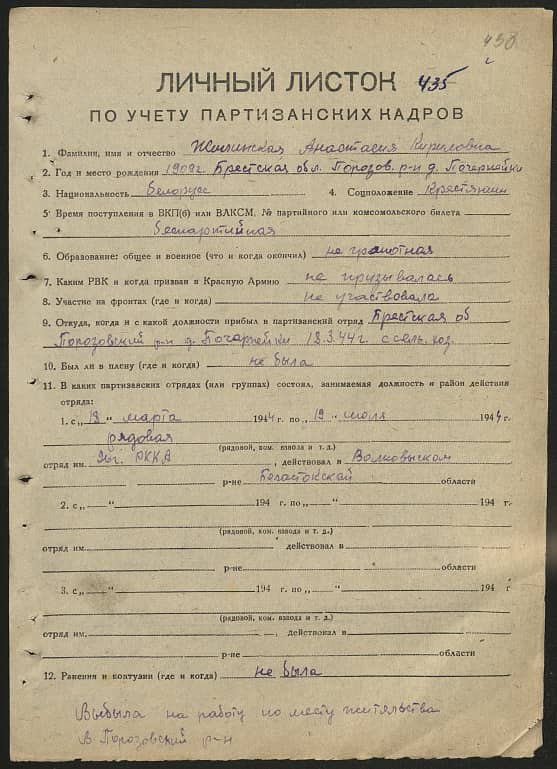 430
ЛИЧНЫЙ ЛИСТОК 435
ПО УЧЕТУ ПАРТИЗАНСКИХ КАДРОВ
1. Фамилия, имя и отчество Анастасия Кириловна
2. Год и место рождения 1909г. Брестская обл. Порозов. р-н д. Почернейки
3. Национальность белорус 4. Соцположение Крестянин
5. Время поступления в ВКП(б) или ВЛКСМ, № партийного или комсомольского билета
беспартийная
6. Образование: общее и военное (что и когда окончил) не грамотная
7. Каким РВК и когда призван в Красную Армию не призывалась
8. Участие на фронтах (где и когда) не участвовала
9. Откуда, когда и с какой должности прибыл в партизанский отряд Брестская об
Порозовский р-н д. Почернейки 18.3.44г. с сель. хоз.
10. Был ли в плену (где и когда) не была
11. В каких партизанских отрядах (или группах) состоял, занимаемая должность и район действия
отряда:
1. с „18 “ марта 1944 г. по „19 “ июля 1944 г.
рядовая
(рядовой, ком. взвода и т. д.)
отряд им. РККА, действовал в Волковыском
р-не Белостокской области
2. с „ “ 194 г. по „ “ 194 г.
(рядовой, ком. взвода и т. д.)
отряд им. действовал в
р-не области
3. с „ “ 194 г. по „ “ 194 г
(рядовой, ком. взвода и т. д.)
отряд им. , действовал в
р-не области
12. Ранения и контузии (где и когда) не была
Выбыла на работу по месту жительства
в Порозовский р-н